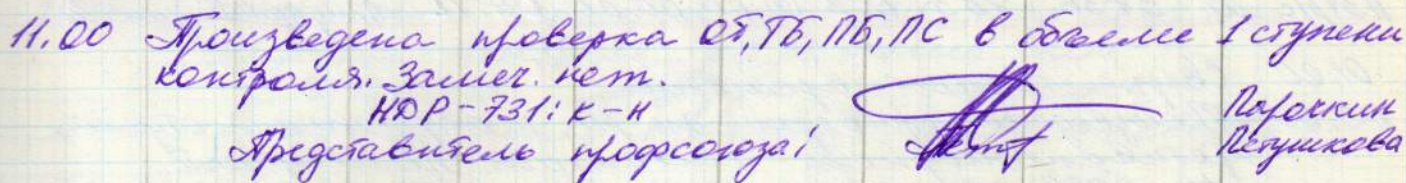 11.00 Произведена проверка ОТ, ТБ, ПБ, ПС в объеме 1 ступени
контроля. Замеч. нет.
НДР-731: к-н Парочкин
Представитель профсоюза: Петушкова